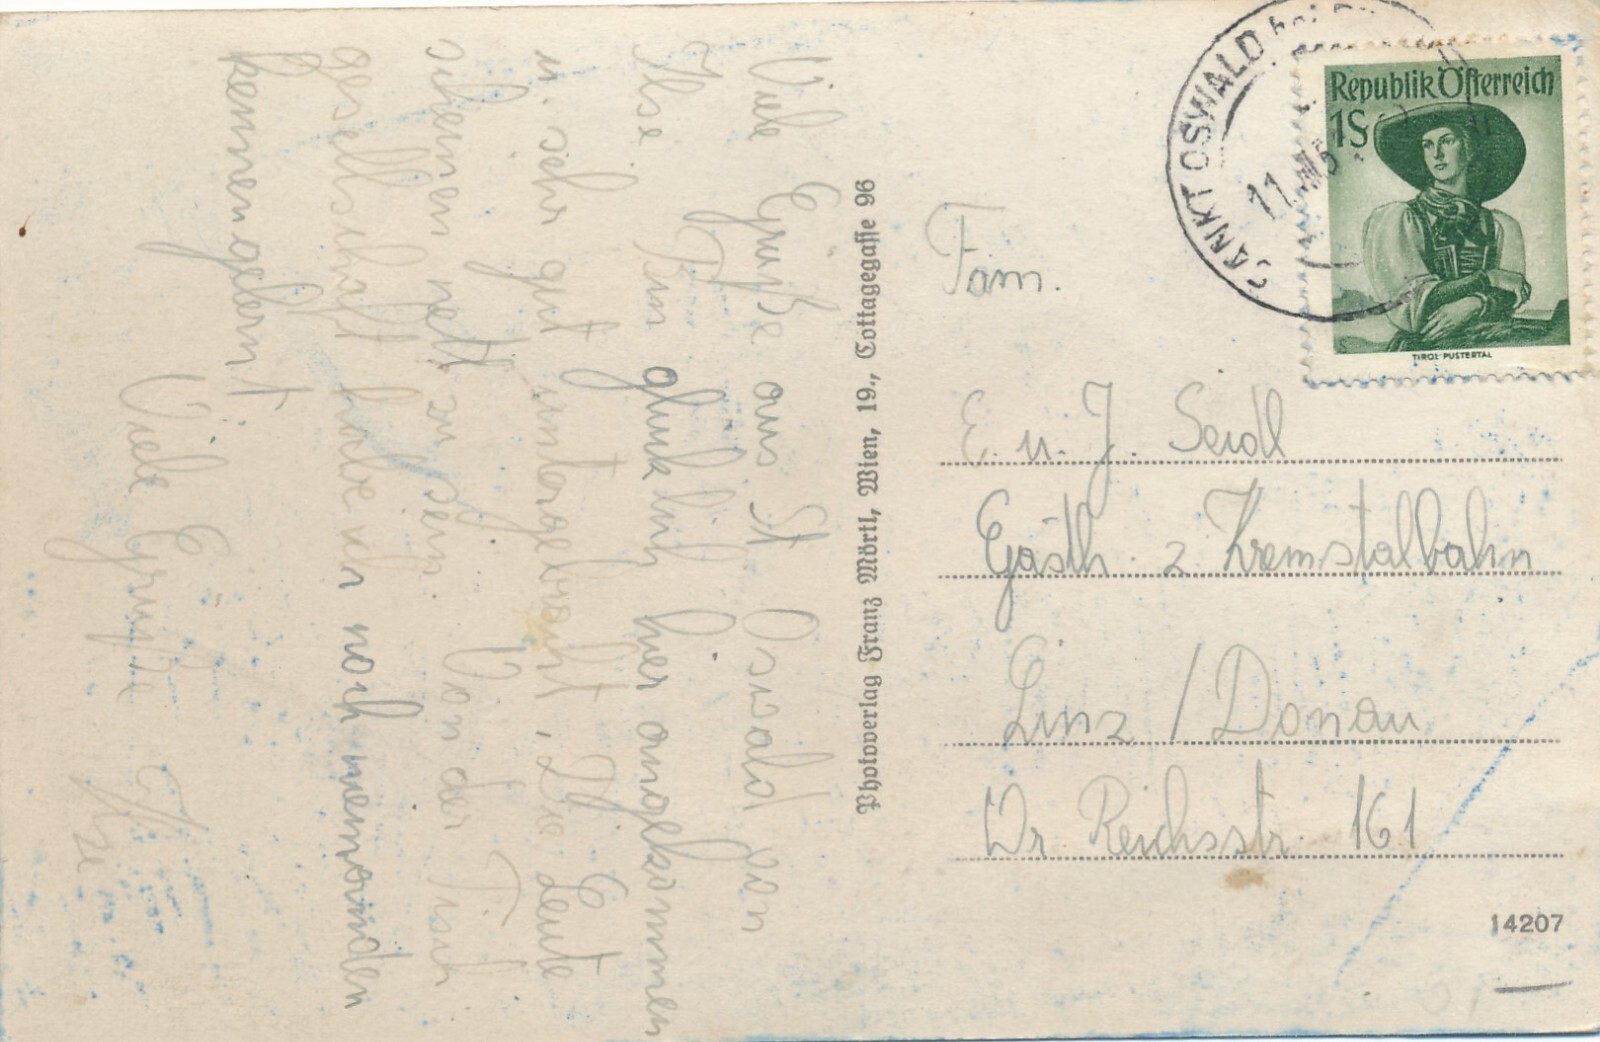 Viele Grüße aus St Oswald von
Ilse. Bin glücklich hier angekommen
u. sehr gut untergebracht. Die Leute
scheinen nett zu sein. Von der Tisch
gesellschaft habe ich noch niemanden
kennengelernt.
Viele Grüße
Ilse
Photoverlag Franz Mörtl, Wien, 19., Cottagegasse 96
SANKT OSWALD bei
11.
Republik Österreich
1S
TIROL PUSTERTAL
Fam.
E. u. J. Seidl
Gasth. z. Kremstalbahn
Linz / Donau
Wr Reichsstr. 161
14207